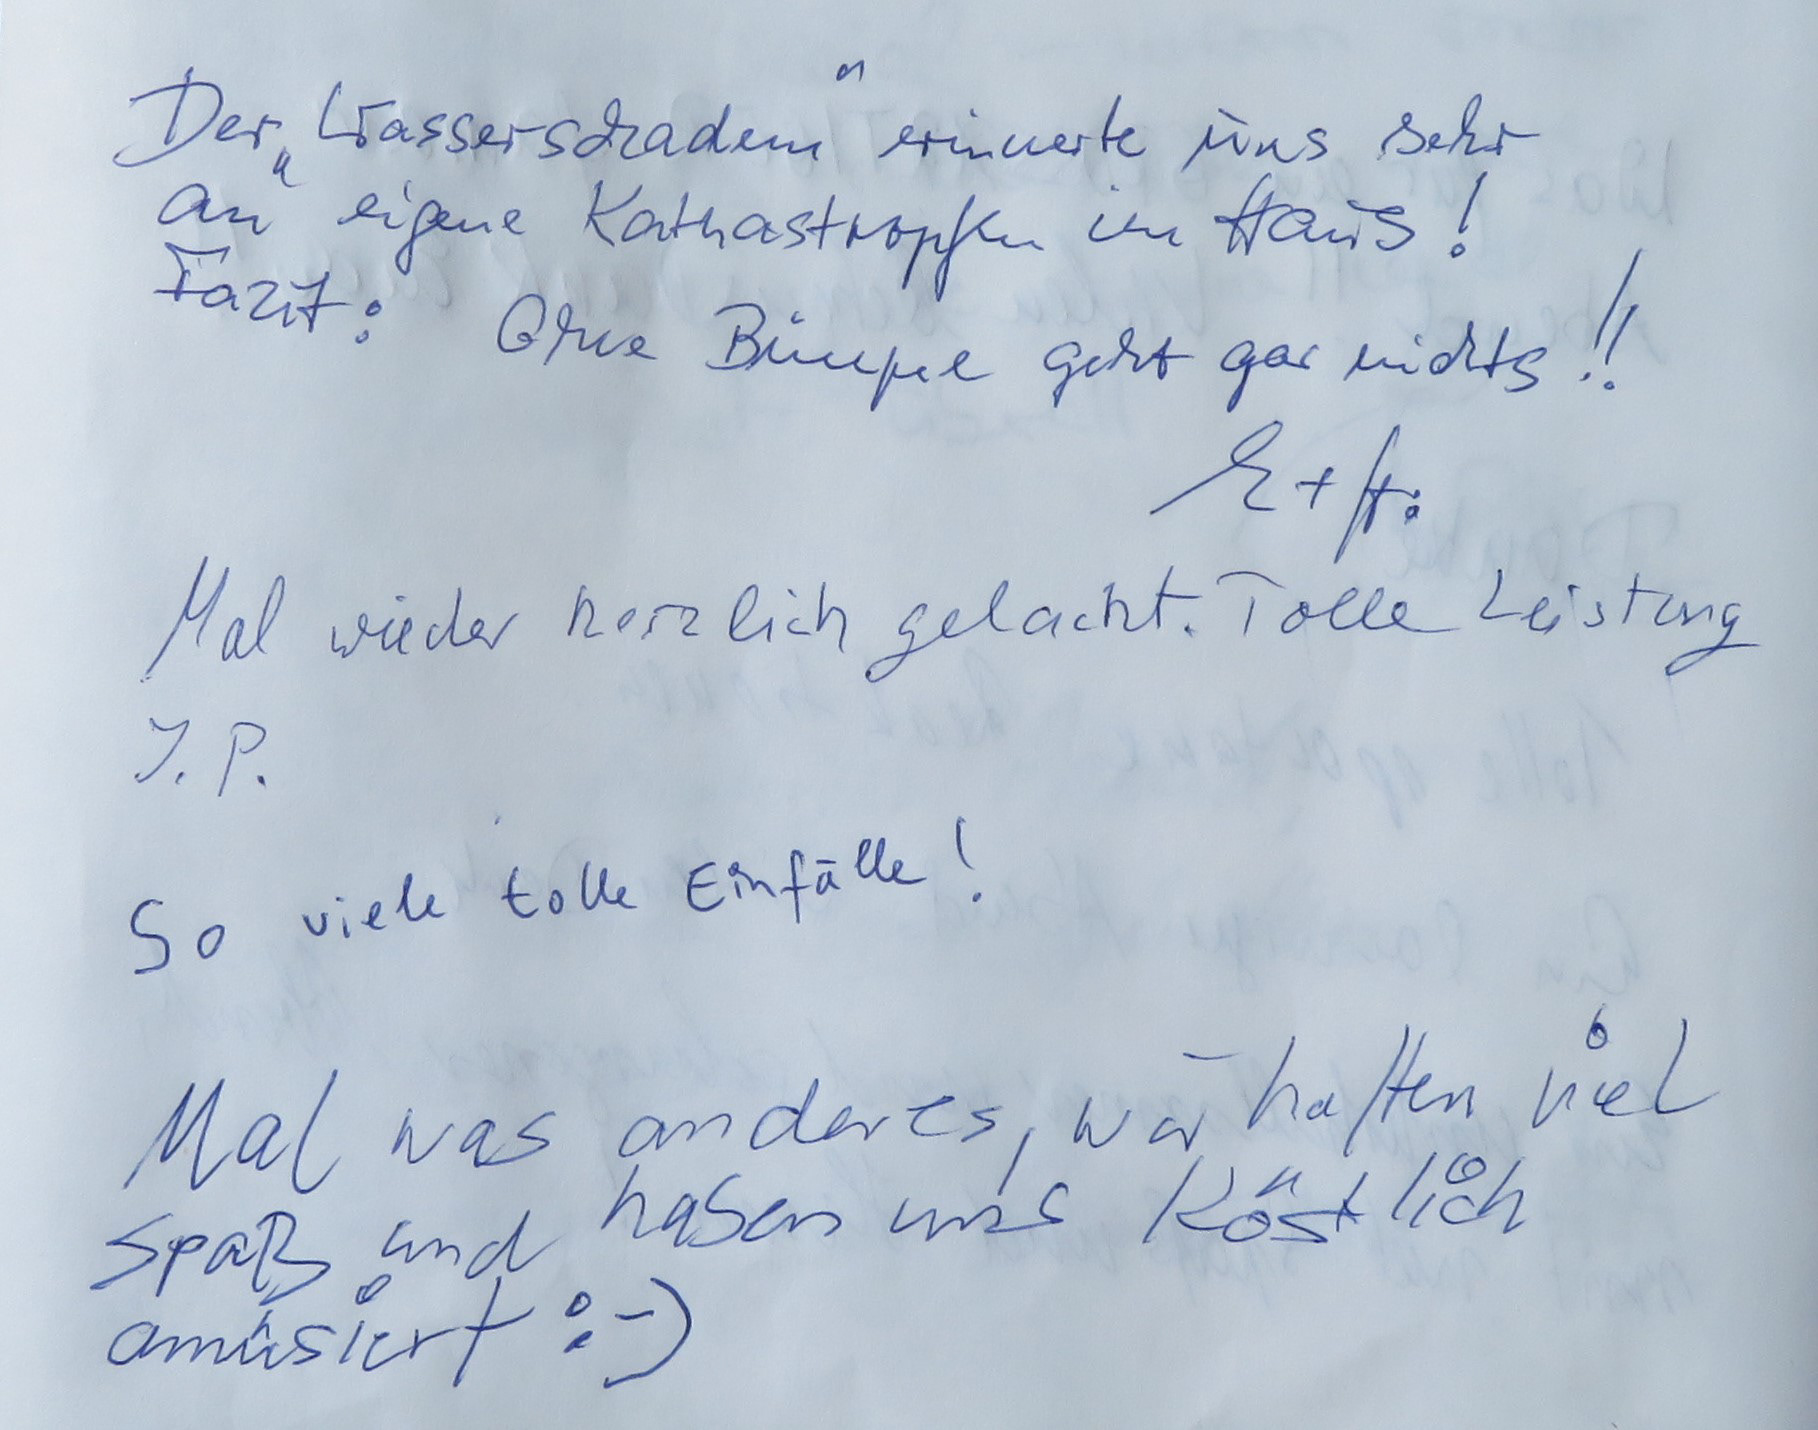 Der „Wasserschaden“ erinnerte uns sehr
an eigene Kathastrophen im Haus!
Fazit: Ohne Bümpel geht gar nichts!!
E + H.
Mal wieder herzlich gelacht. Tolle Leistung
J. P.
So viele tolle Einfälle!
Mal was anderes, wir hatten viel
Spaß und haben uns köstlich
amüsiert :-)